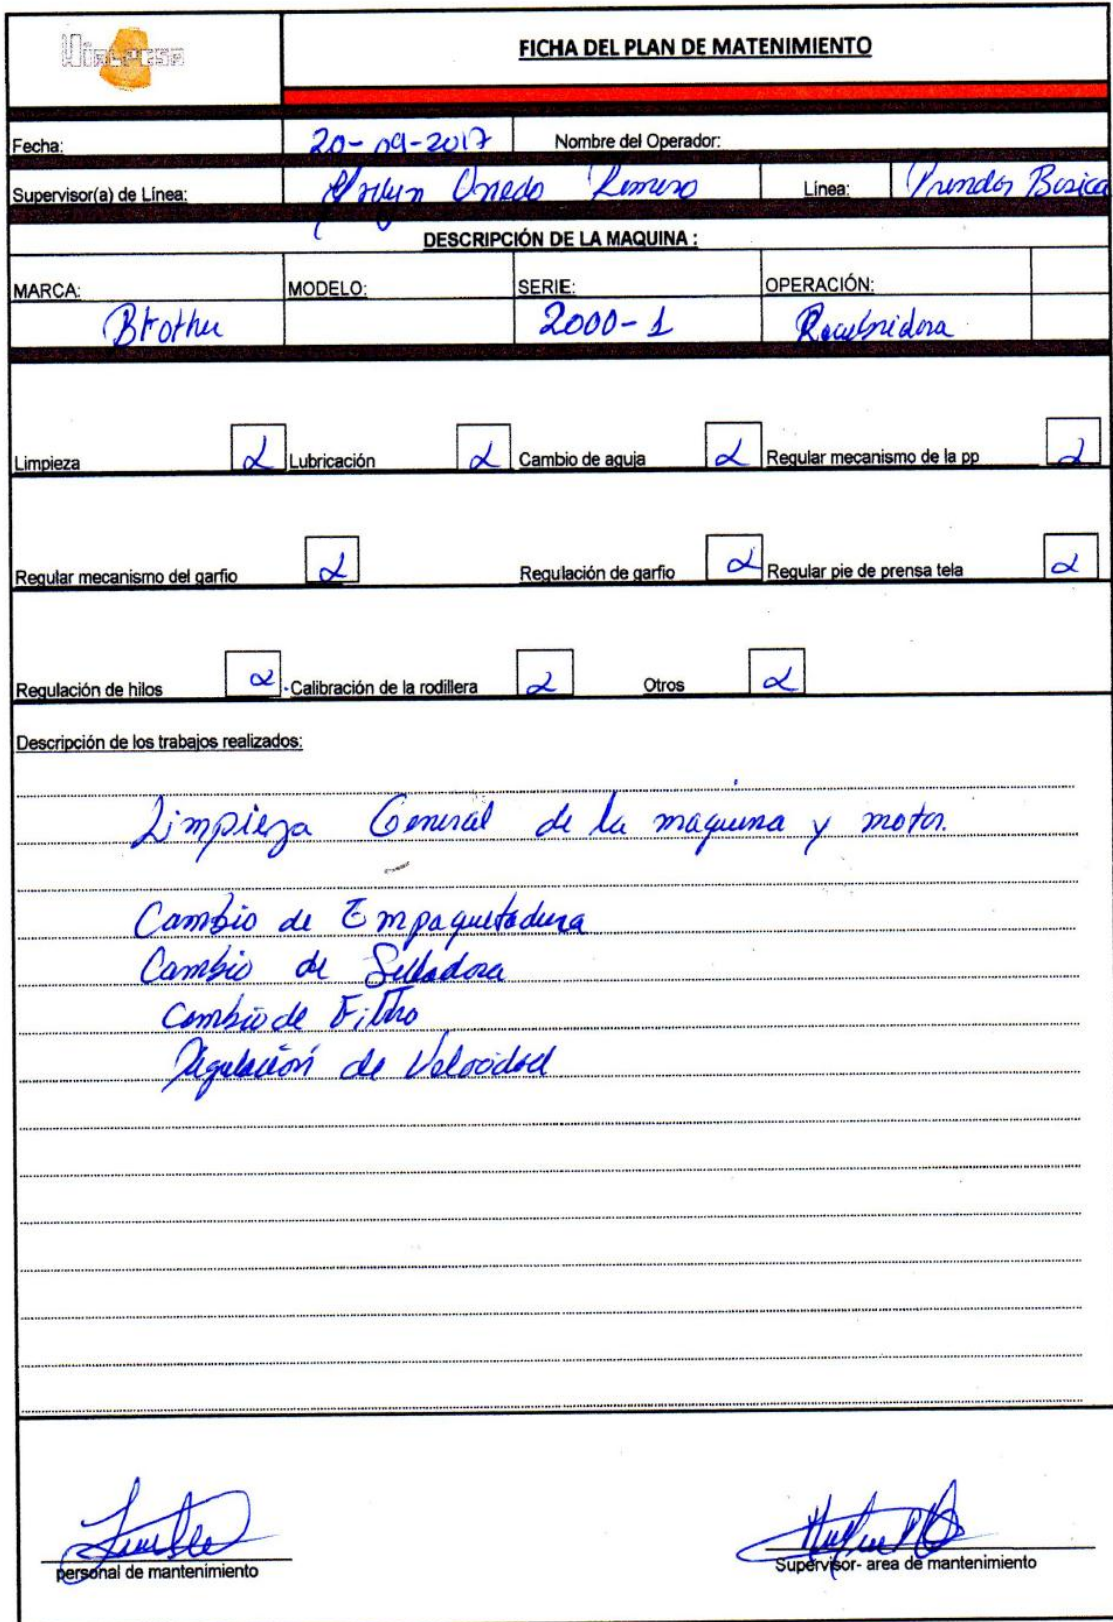 Hialpesa
FICHA DEL PLAN DE MATENIMIENTO
Fecha: 20-09-2017 Nombre del Operador:
Supervisor(a) de Línea: Oviedo Romero Línea: Prendas Basica
DESCRIPCIÓN DE LA MAQUINA :
MARCA: MODELO: SERIE: OPERACIÓN:
Brother 2000-1 Recubridora
Limpieza Lubricación Cambio de aguja Regular mecanismo de la pp
Regular mecanismo del garfio Regulación de garfio Regular pie de prensa tela
Regulación de hilos Calibración de la rodillera Otros
Descripción de los trabajos realizados:
Limpieza General de la maquina y motor.
Cambio de Empaquetadura
Cambio de Selladora
Cambio de Filtro
Regulación de Velocidad
personal de mantenimiento Supervisor- area de mantenimiento